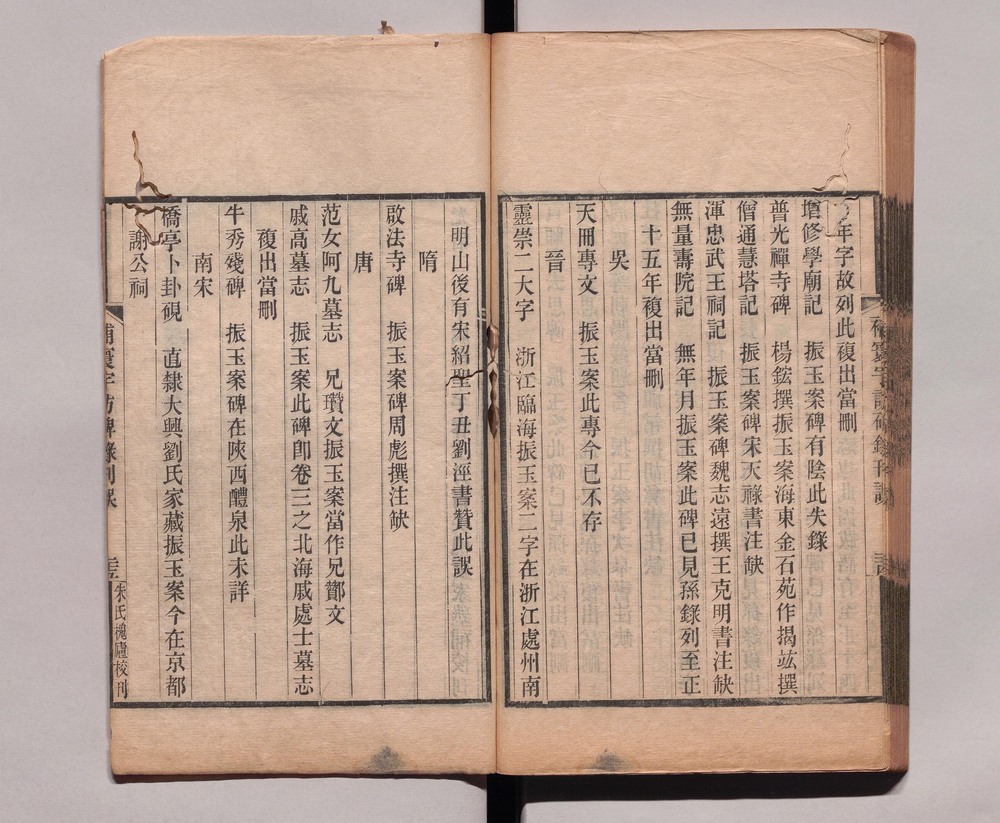 年字故列此複出當刪
增修學廟記　振玉案碑有陰此失錄
普光禪寺碑　楊鋐撰振玉案海東金石苑作揭竑撰
僧通慧塔記　振玉案碑宋天祿書注缺
渾忠武王祠記　振玉案碑魏志遠撰王克明書注缺
無量壽院記　無年月振玉案此碑已見孫錄列至正
十五年複出當刪
吳
天冊專文　振玉案此專今已不存
晉
靈崇二大字　浙江臨海振玉案二字在浙江處州南
明山後有宋紹聖丁丑劉淫書贊此誤
隋
啟法寺碑　振玉案碑周彪撰注缺
唐
范女阿九墓志　兄瓚文振玉案當作兄酇文
戚高墓志　振玉案此碑卽卷三之北海戚處士墓志
複出當刪
牛秀殘碑　振玉案碑在陝西醴泉此未詳
南宋
橋亭卜卦硯　直隸大興劉氏家藏振玉案今在京都
謝公祠
補寰宇訪碑錄刊誤
朱氏槐廬校刊